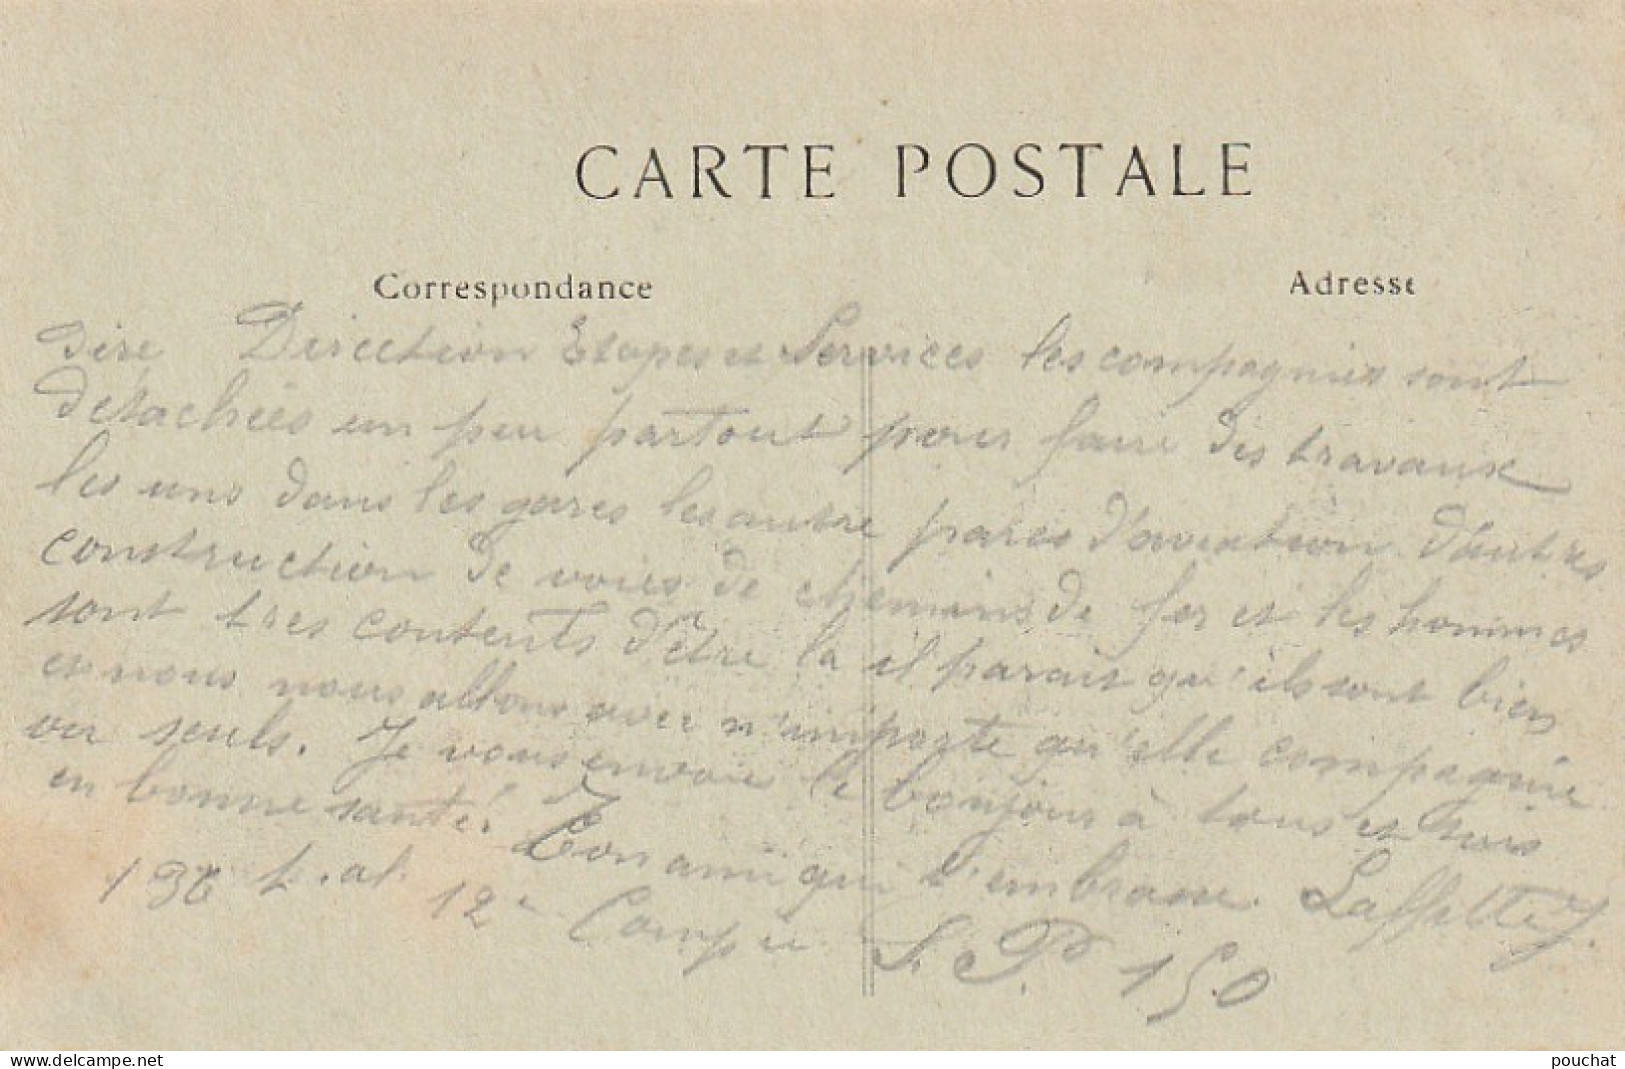 CARTE POSTALE
Correspondance
Adresse
dire Direction Etapes et Services les compagnies sont
détachées un peu partout pour faire des travaux
les uns dans les gares les autre parcs d'aviation d'autres
construction de voies de chemins de fer et les hommes
sont tres contents d'être la il parait qu'ils sont bien
et nous nous allons avec n'importe qu'elle compagnie
ou seuls. Je vous envoie le bonjour à tous et suis
en bonne santé. Ton ami qui t'embrasse. Laffitte J.
136 t.al 12e Compie S.P. 150
delcampe.net
pouchat